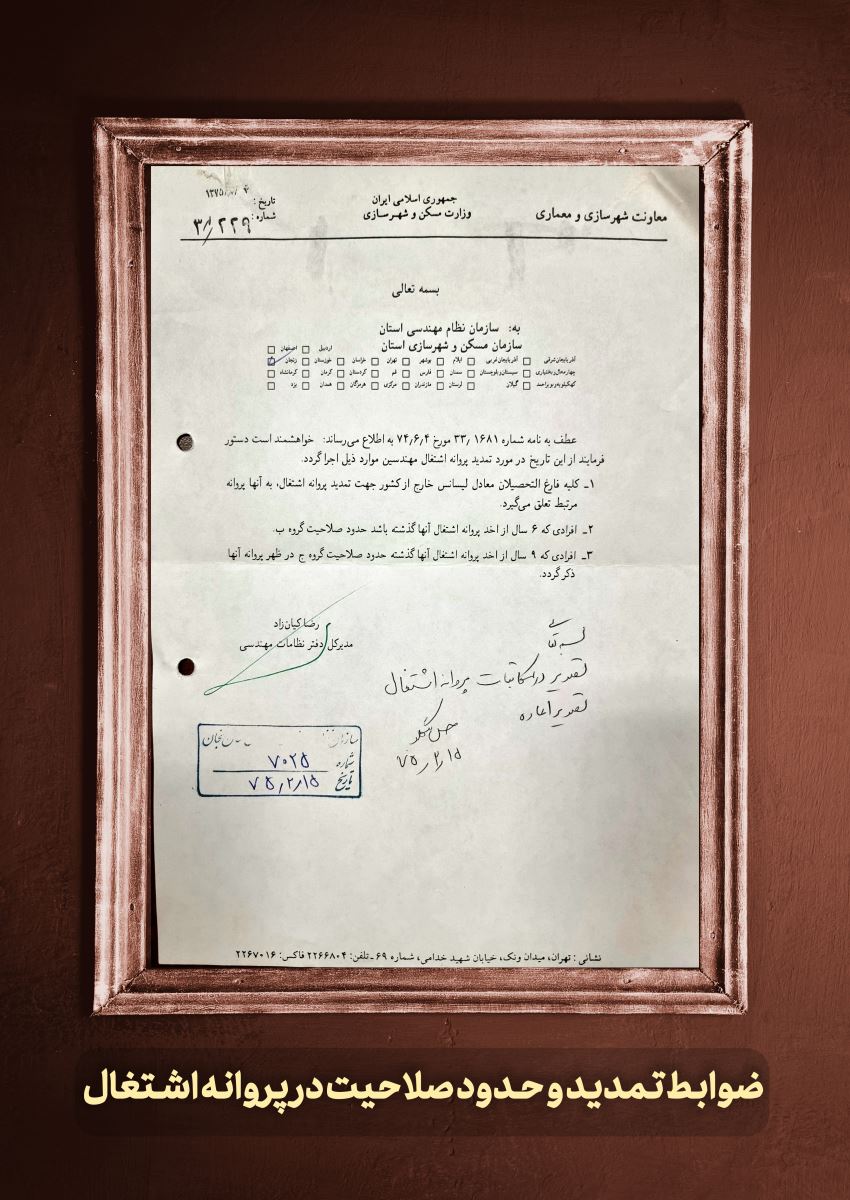 جمهوری اسلامی ایران
معاونت شهرسازی و معماری
وزارت مسکن و شهرسازی
تاریخ :
شماره : ۳/۲۲۹
بسمه تعالی
به: سازمان نظام مهندسی استان
سازمان مسکن و شهرسازی استان
اردبیل اصفهان
آذربایجان‌شرقی آذربایجان‌غربی ایلام بوشهر تهران خراسان خوزستان زنجان
چهارمحال‌وبختیاری سیستان‌وبلوچستان سمنان فارس قم کردستان کرمان کرمانشاه
کهکیلویه‌وبویراحمد گیلان لرستان مازندران مرکزی هرمزگان همدان یزد
عطف به نامه شماره ۱۶۸۱ /۳۳ مورخ ۷۴٫۶٫۴ به اطلاع می‌رساند: خواهشمند است دستور
فرمایند از این تاریخ در مورد تمدید پروانه اشتغال مهندسین موارد ذیل اجرا گردد.
۱ـ کلیه فارغ التحصیلان معادل لیسانس خارج از کشور جهت تمدید پروانه اشتغال، به آنها پروانه
مرتبط تعلق می‌گیرد.
۲ـ افرادی که ۶ سال از اخذ پروانه اشتغال آنها گذشته باشد حدود صلاحیت گروه ب.
۳ـ افرادی که ۹ سال از اخذ پروانه اشتغال آنها گذشته حدود صلاحیت گروه ج در ظهر پروانه آنها
ذکر گردد.
رضا کیان‌زاد
مدیرکل دفتر نظامات مهندسی
بسمه تعالی
تصویر در مکاتبات پروانه اشتغال
تصویر اعاده
۷۵٫۲٫۱۵
شماره ۷۰۲۵
تاریخ ۷۵٫۲٫۱۵
نشانی : تهران، میدان ونک، خیابان شهید خدامی، شماره ۶۹ ـ تلفن: ۲۲۶۶۸۰۴ فاکس: ۲۲۶۷۰۱۶
ضوابط تمدید و حدود صلاحیت در پروانه اشتغال